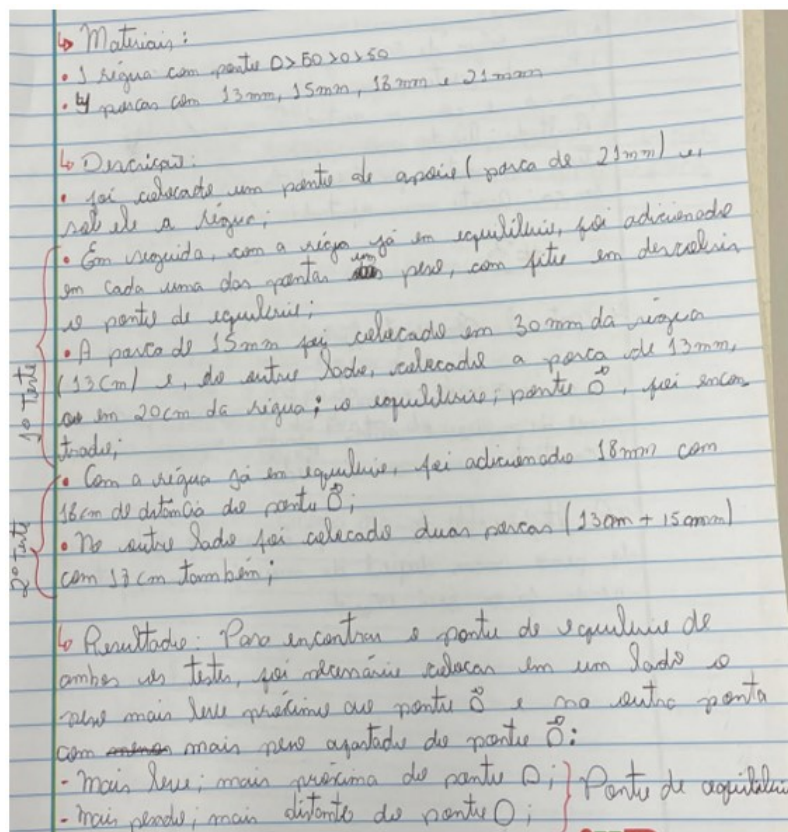 ↳ Materiais:
• 1 régua com ponto 0 > 50 > 0 > 50
• 4 porcas com 13mm, 15mm, 18mm e 21mm
↳ Descrição:
• foi colocado um ponto de apoio (porca de 21mm) e,
sob ele a régua;
• Em seguida, com a régua já em equilíbrio, foi adicionado
em cada uma das pontas um peso, com fito em descobrir
o ponto de equilíbrio;
• A porca de 15mm foi colocado em 30mm da régua
(13cm) e, do outro lado, colocado a porca de 13mm,
em 20cm da régua; o equilíbrio; ponto O, foi encon
trado;
• Com a régua já em equilíbrio, foi adicionado 18mm com
18cm de distância do ponto O;
• No outro lado foi colocado duas porcas (13cm + 15mm)
com 13cm também;
1º Teste
2º Teste
↳ Resultado: Para encontrar o ponto de equilíbrio de
ambos os testes, foi necessário colocar em um lado o
peso mais leve próximo ao ponto O e na outra ponta
com mais peso afastado do ponto O:
- Mais leve; mais próxima do ponto O;
- Mais pesado; mais distante do ponto O;
Ponto de equilíbrio